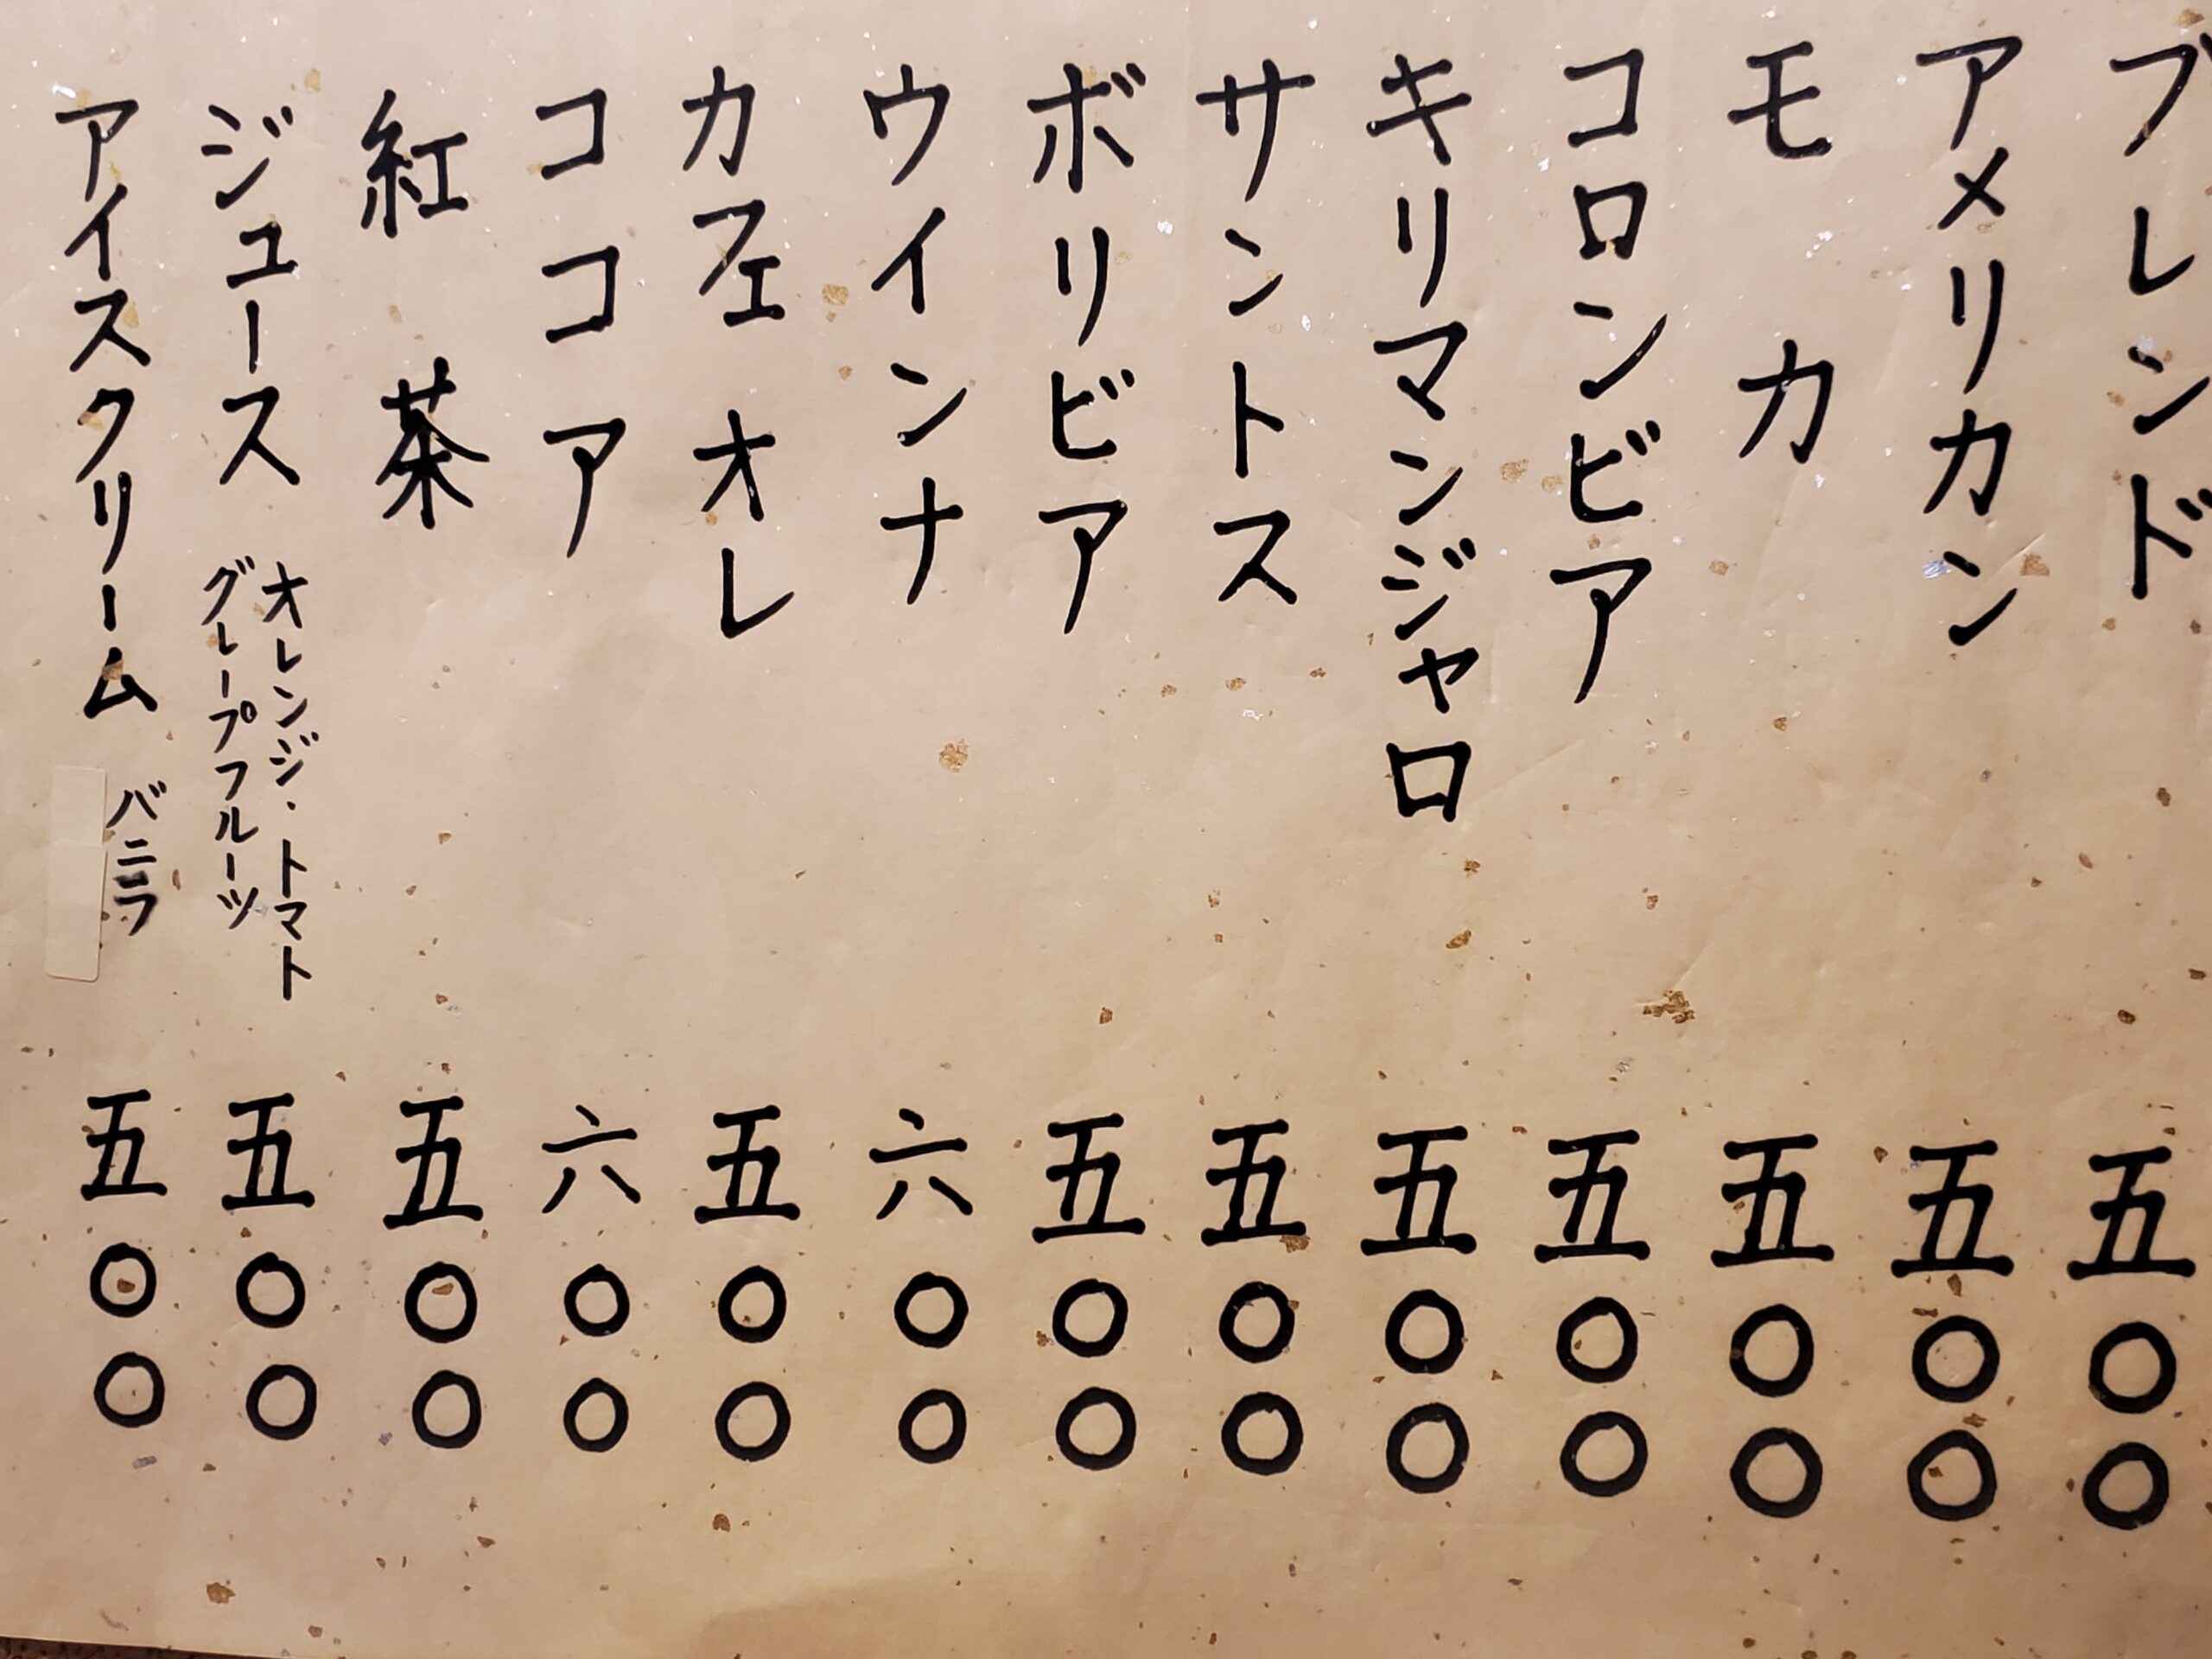 ブレンド 五〇〇
アメリカン 五〇〇
モカ 五〇〇
コロンビア 五〇〇
キリマンジャロ 五〇〇
サントス 五〇〇
ボリビア 五〇〇
ウインナ 六〇〇
カフェオレ 五〇〇
ココア 六〇〇
紅茶 五〇〇
ジュース オレンジ・トマト グレープフルーツ 五〇〇
アイスクリーム バニラ 五〇〇